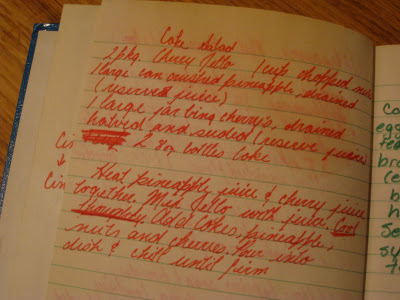 Coke Salad
2 pkg. Cherry Jello 1 cup chopped nuts
1 large can crushed pineapple, drained
(reserved juice)
1 large jar bing cherry's, drained
halved and seeded (reserve juice)
2 8oz bottles Coke
Heat pineapple juice & cherry juice
together. Mix Jello with juice. Cool
thoughly. Add Cokes, pineapple,
nuts and cherries. Pour into
dish & chill until firm